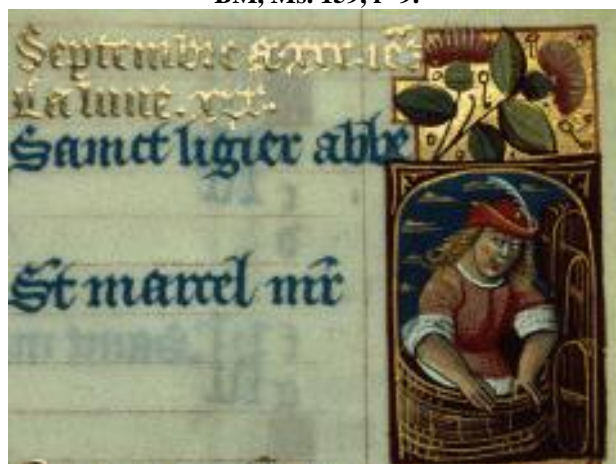 BM, Ms. 139, f° 9.
Septembre a xxx. io˜
La lune. xxx.
Sainct ligier abbe
St marcel mr̃